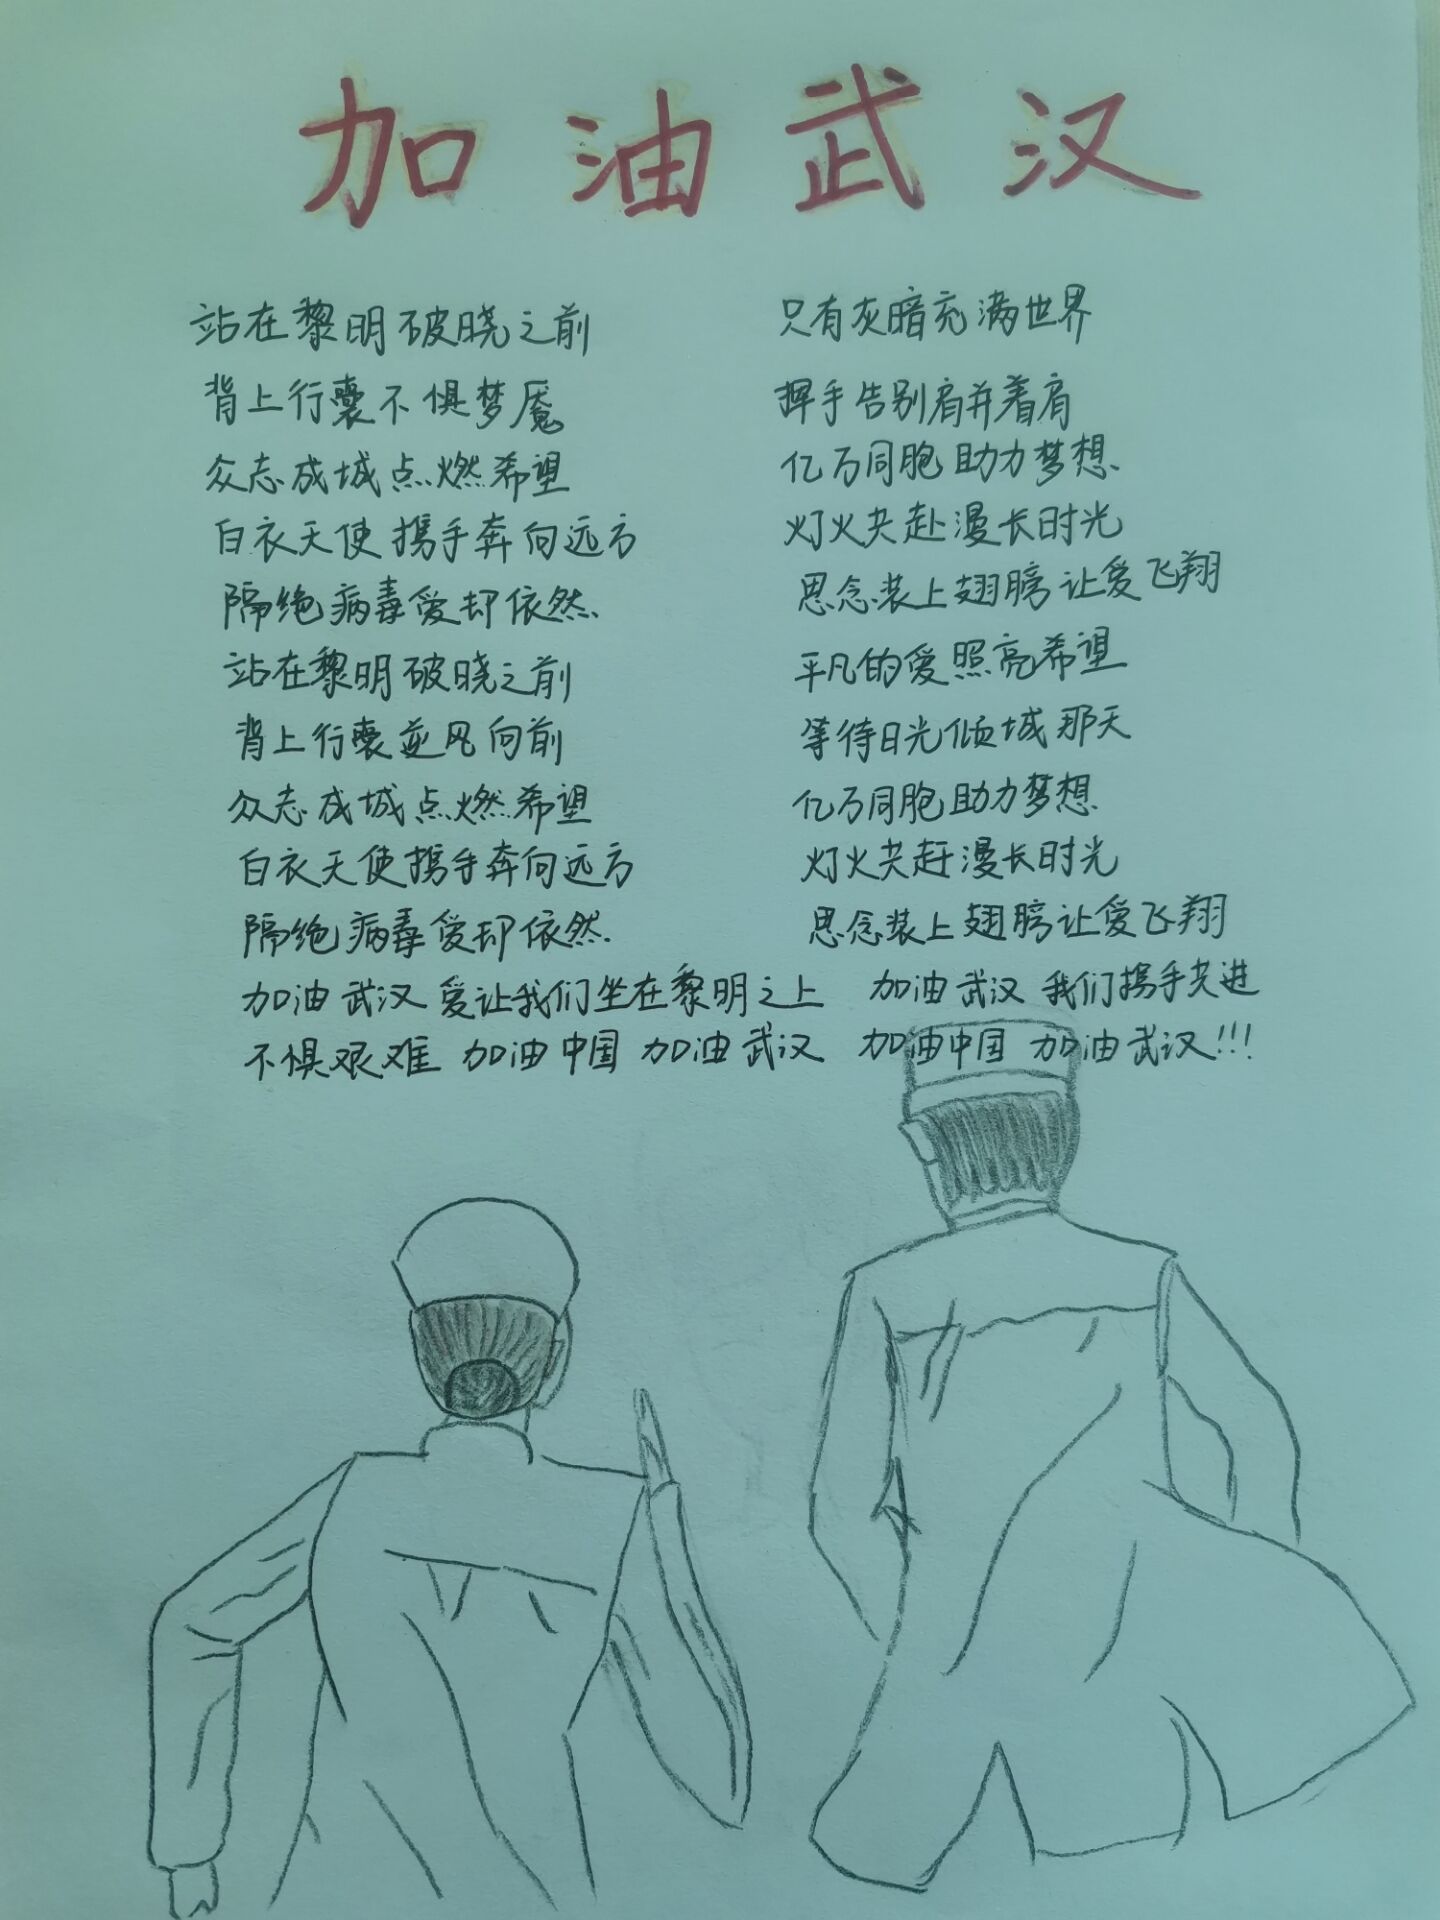 加油武汉
站在黎明破晓之前 只有灰暗充满世界
背上行囊不惧梦魇 挥手告别肩并着肩
众志成城点燃希望 亿万同胞助力梦想
白衣天使携手奔向远方 灯火共赴漫长时光
隔绝病毒爱却依然 思念装上翅膀让爱飞翔
站在黎明破晓之前 平凡的爱照亮希望
背上行囊逆风向前 等待日光倾城那天
众志成城点燃希望 亿万同胞助力梦想
白衣天使携手奔向远方 灯火共赶漫长时光
隔绝病毒爱却依然 思念装上翅膀让爱飞翔
加油武汉 爱让我们坐在黎明之上 加油武汉 我们携手共进
不惧艰难 加油中国 加油武汉 加油中国 加油武汉!!!